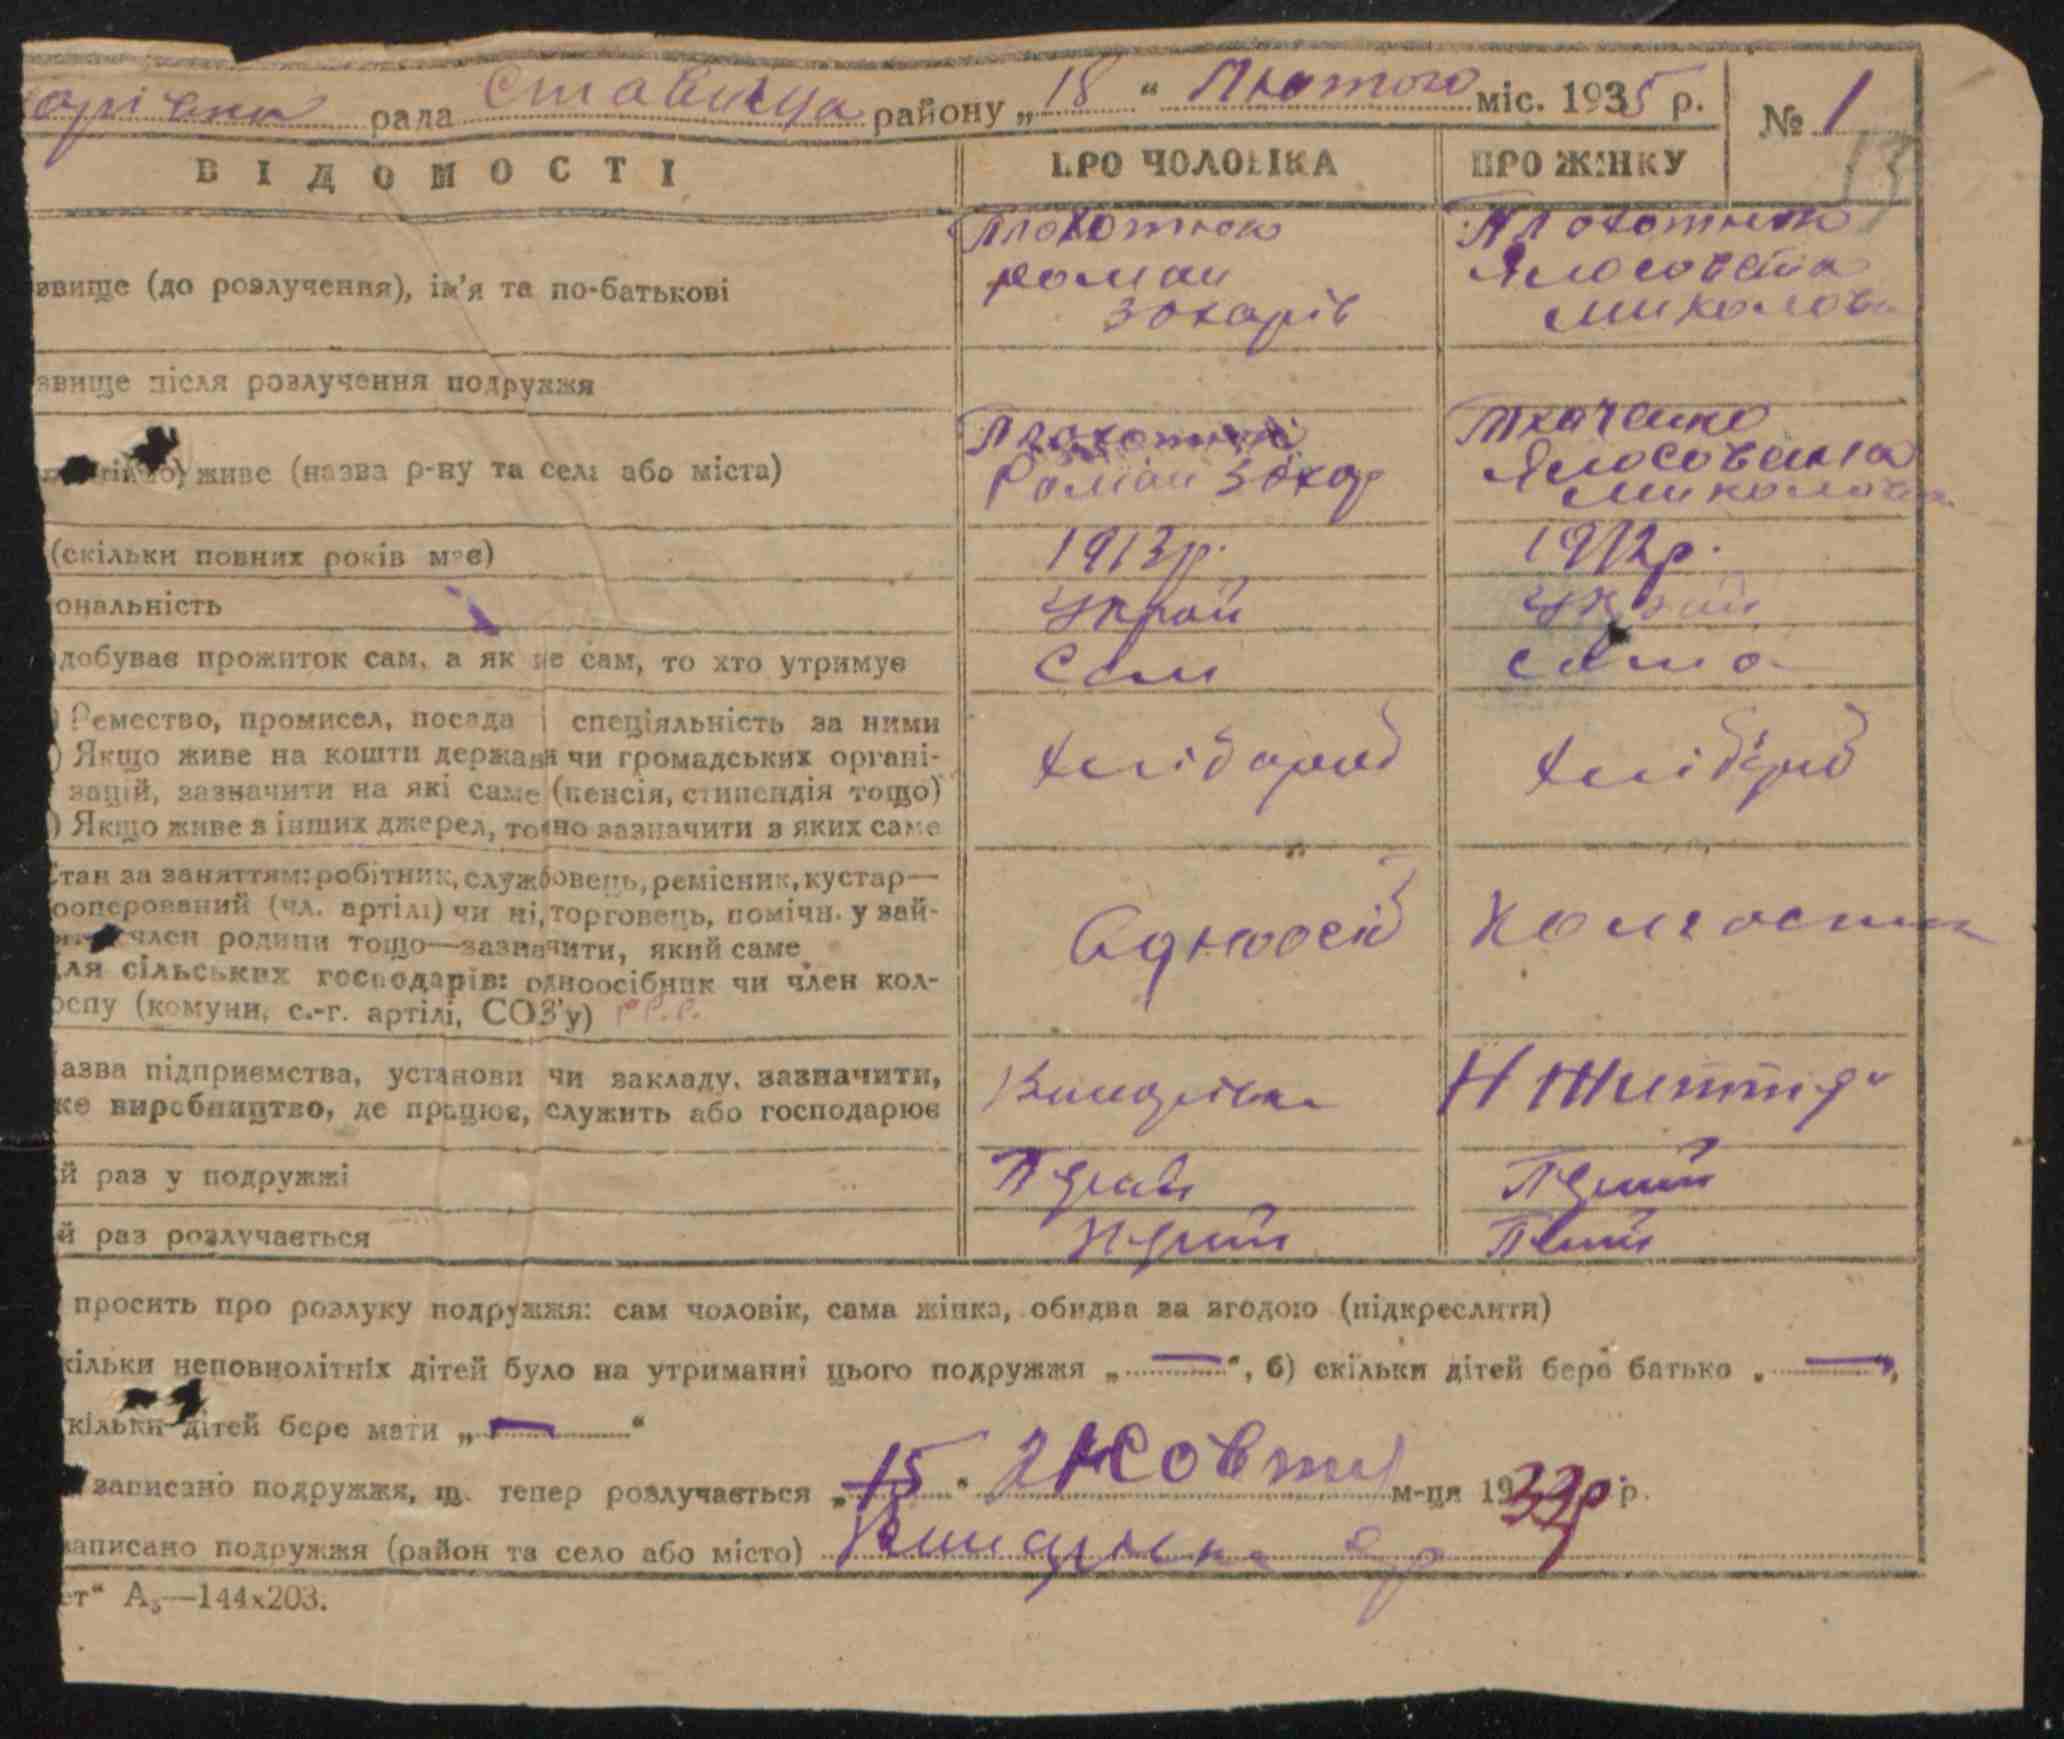 рада Ставища району „18“ Лютого міс. 1935 р. № 1
13
ВІДОМОСТІ ПРО ЧОЛОВІКА ПРО ЖІНКУ
звище (до розлучення), ім'я та по-батькові
Плохотнюк
Роман
Захарів
Плохотнюк
Миколов
звище після розлучення подружжя
живе (назва р-ну та села або міста)
Роман Захар
Ткаченко
(скільки повних років має) 1913р. 1912р.
ональність Украй Украй
добуває прожиток сам, а як не сам, то хто утримує Сам сама
) Ремество, промисел, посада і спеціяльність за ними
) Якщо живе на кошти держави чи громадських органі-
зацій, зазначити на які саме (пенсія, стипендія тощо)
) Якщо живе з інших джерел, точно зазначити з яких саме
Хлібороб Хлібороб
Стан за заняттям: робітник, службовець, ремісник, кустар—
кооперований (чл. артілі) чи ні, торговець, помічн. у зай-
член родини тощо—зазначити, який саме
Для сільських господарів: одноосібник чи член кол-
оспу (комуни, с.-г. артілі, СОЗ'у)
Одноосіб Колгоспник
азва підприємства, установи чи закладу, зазначити,
ке виробництво, де працює, служить або господарює
Н Життя
й раз у подружжі Перший
й раз розлучається
просить про розлуку подружжя: сам чоловік, сама жінка, обидва за згодою (підкреслити)
кільки неповнолітніх дітей було на утриманні цього подружжя „—“, б) скільки дітей бере батько „—“,
кільки дітей бере мати „—“
записано подружжя, що тепер розлучається „15“ Жовтня м-ця 1933р р.
записано подружжя (район та село або місто)
ет“ А₅—144х203.